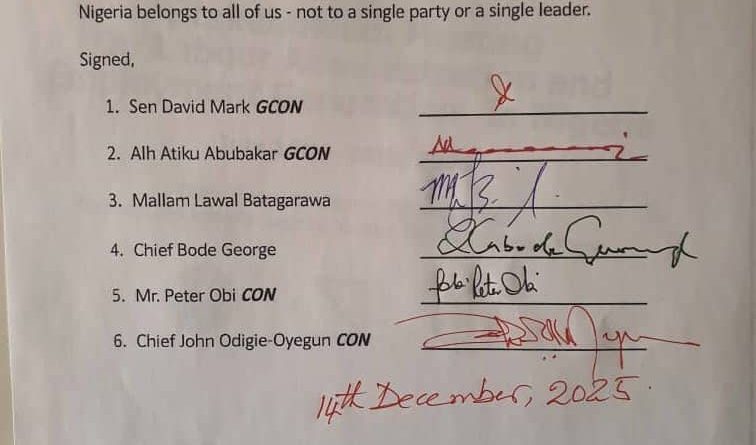 Nigeria belongs to all of us - not to a single party or a single leader.
Signed,
1. Sen David Mark GCON
2. Alh Atiku Abubakar GCON
3. Mallam Lawal Batagarawa
4. Chief Bode George
5. Mr. Peter Obi CON Peter Obi
6. Chief John Odigie-Oyegun CON
14th December, 2025.